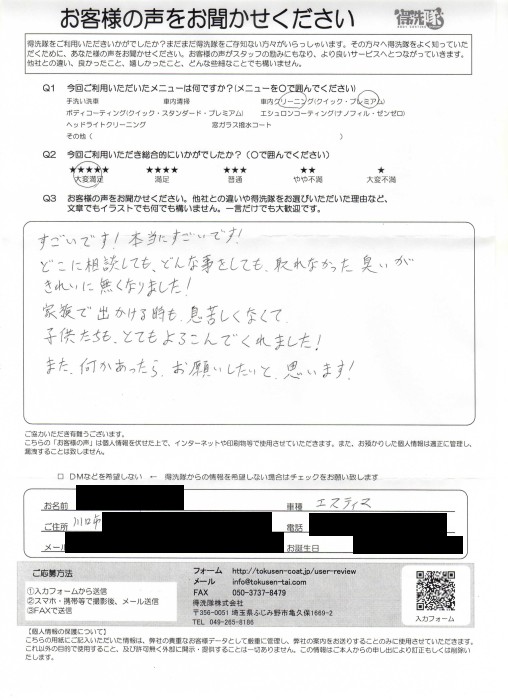 お客様の声をお聞かせください
得洗隊
得洗隊をご利用いただきいかがでしたか?まだまだ得洗隊をご存知ない方々がいらっしゃいます。その方々へ得洗隊をよく知っていた
だくために、あなた様の声をお聞かせください。お客様の声がスタッフの励みにもなり、より良いサービスへとつながっていきます。
他社との違い、良かったこと、嬉しかったこと、どんな些細なことでも構いません。
Q1 今回ご利用いただいたメニューは何ですか?(メニューを〇で囲んでください)
手洗い洗車 車内清掃 車内クリーニング(クイック・プレミアム)
ボディコーティング(クイック・スタンダード・プレミアム) エシュロンコーティング(ナノフィル・ゼンゼロ)
ヘッドライトクリーニング 窓ガラス撥水コート
その他(
Q2 今回ご利用いただき総合的にいかがでしたか?(〇で囲んでください)
★★★★★ ★★★★ ★★★ ★★ ★
大変満足 満足 普通 やや不満 大変不満
Q3 お客様の声をお聞かせください。他社との違いや得洗隊をお選びいただいた理由など、
文章でもイラストでも何でも構いません。一言だけでも大歓迎です。
すごいです!本当にすごいです!
どこに相談しても、どんな事をしても、取れなかった臭いが
きれいに無くなりました!
家族で出かける時も、息苦しくなくて、
子供たちも、とてもよろこんでくれました!
また、何かあったら、お願いしたいと、思います!
ご協力いただき有難うございます。
こちらの「お客様の声」は個人情報を伏せた上で、インターネットや印刷物等で使用させていただきます。また、お預かりした個人情報は適正に管理し、
漏洩することは致しません。
□ DMなどを希望しない ← 得洗隊からの情報を希望しない場合はチェックをお願い致します
お名前 車種 エスティマ
ご住所 川口市 電話
メール お誕生日
ご応募方法
①入力フォームから送信
②スマホ・携帯等で撮影後、メール送信
③FAXで送信
フォーム http://tokusen-coat.jp/user-review
メール info@tokusen-tai.com
FAX 050-3737-8479
得洗隊株式会社
〒356-0051 埼玉県ふじみ野市亀久保1669-2
TEL 049-265-8186
入力フォーム
【個人情報の保護について】
こちらの用紙にご記入いただいた情報は、弊社の貴重なお客様データとして厳重に管理し、弊社の案内をお送りすることのみに使用させていただきます。
これ以外の目的で使用すること、及び許可無く外部に開示・提供することは一切ありません。この情報はご本人からの申し出により訂正もしくは削除い
たします。